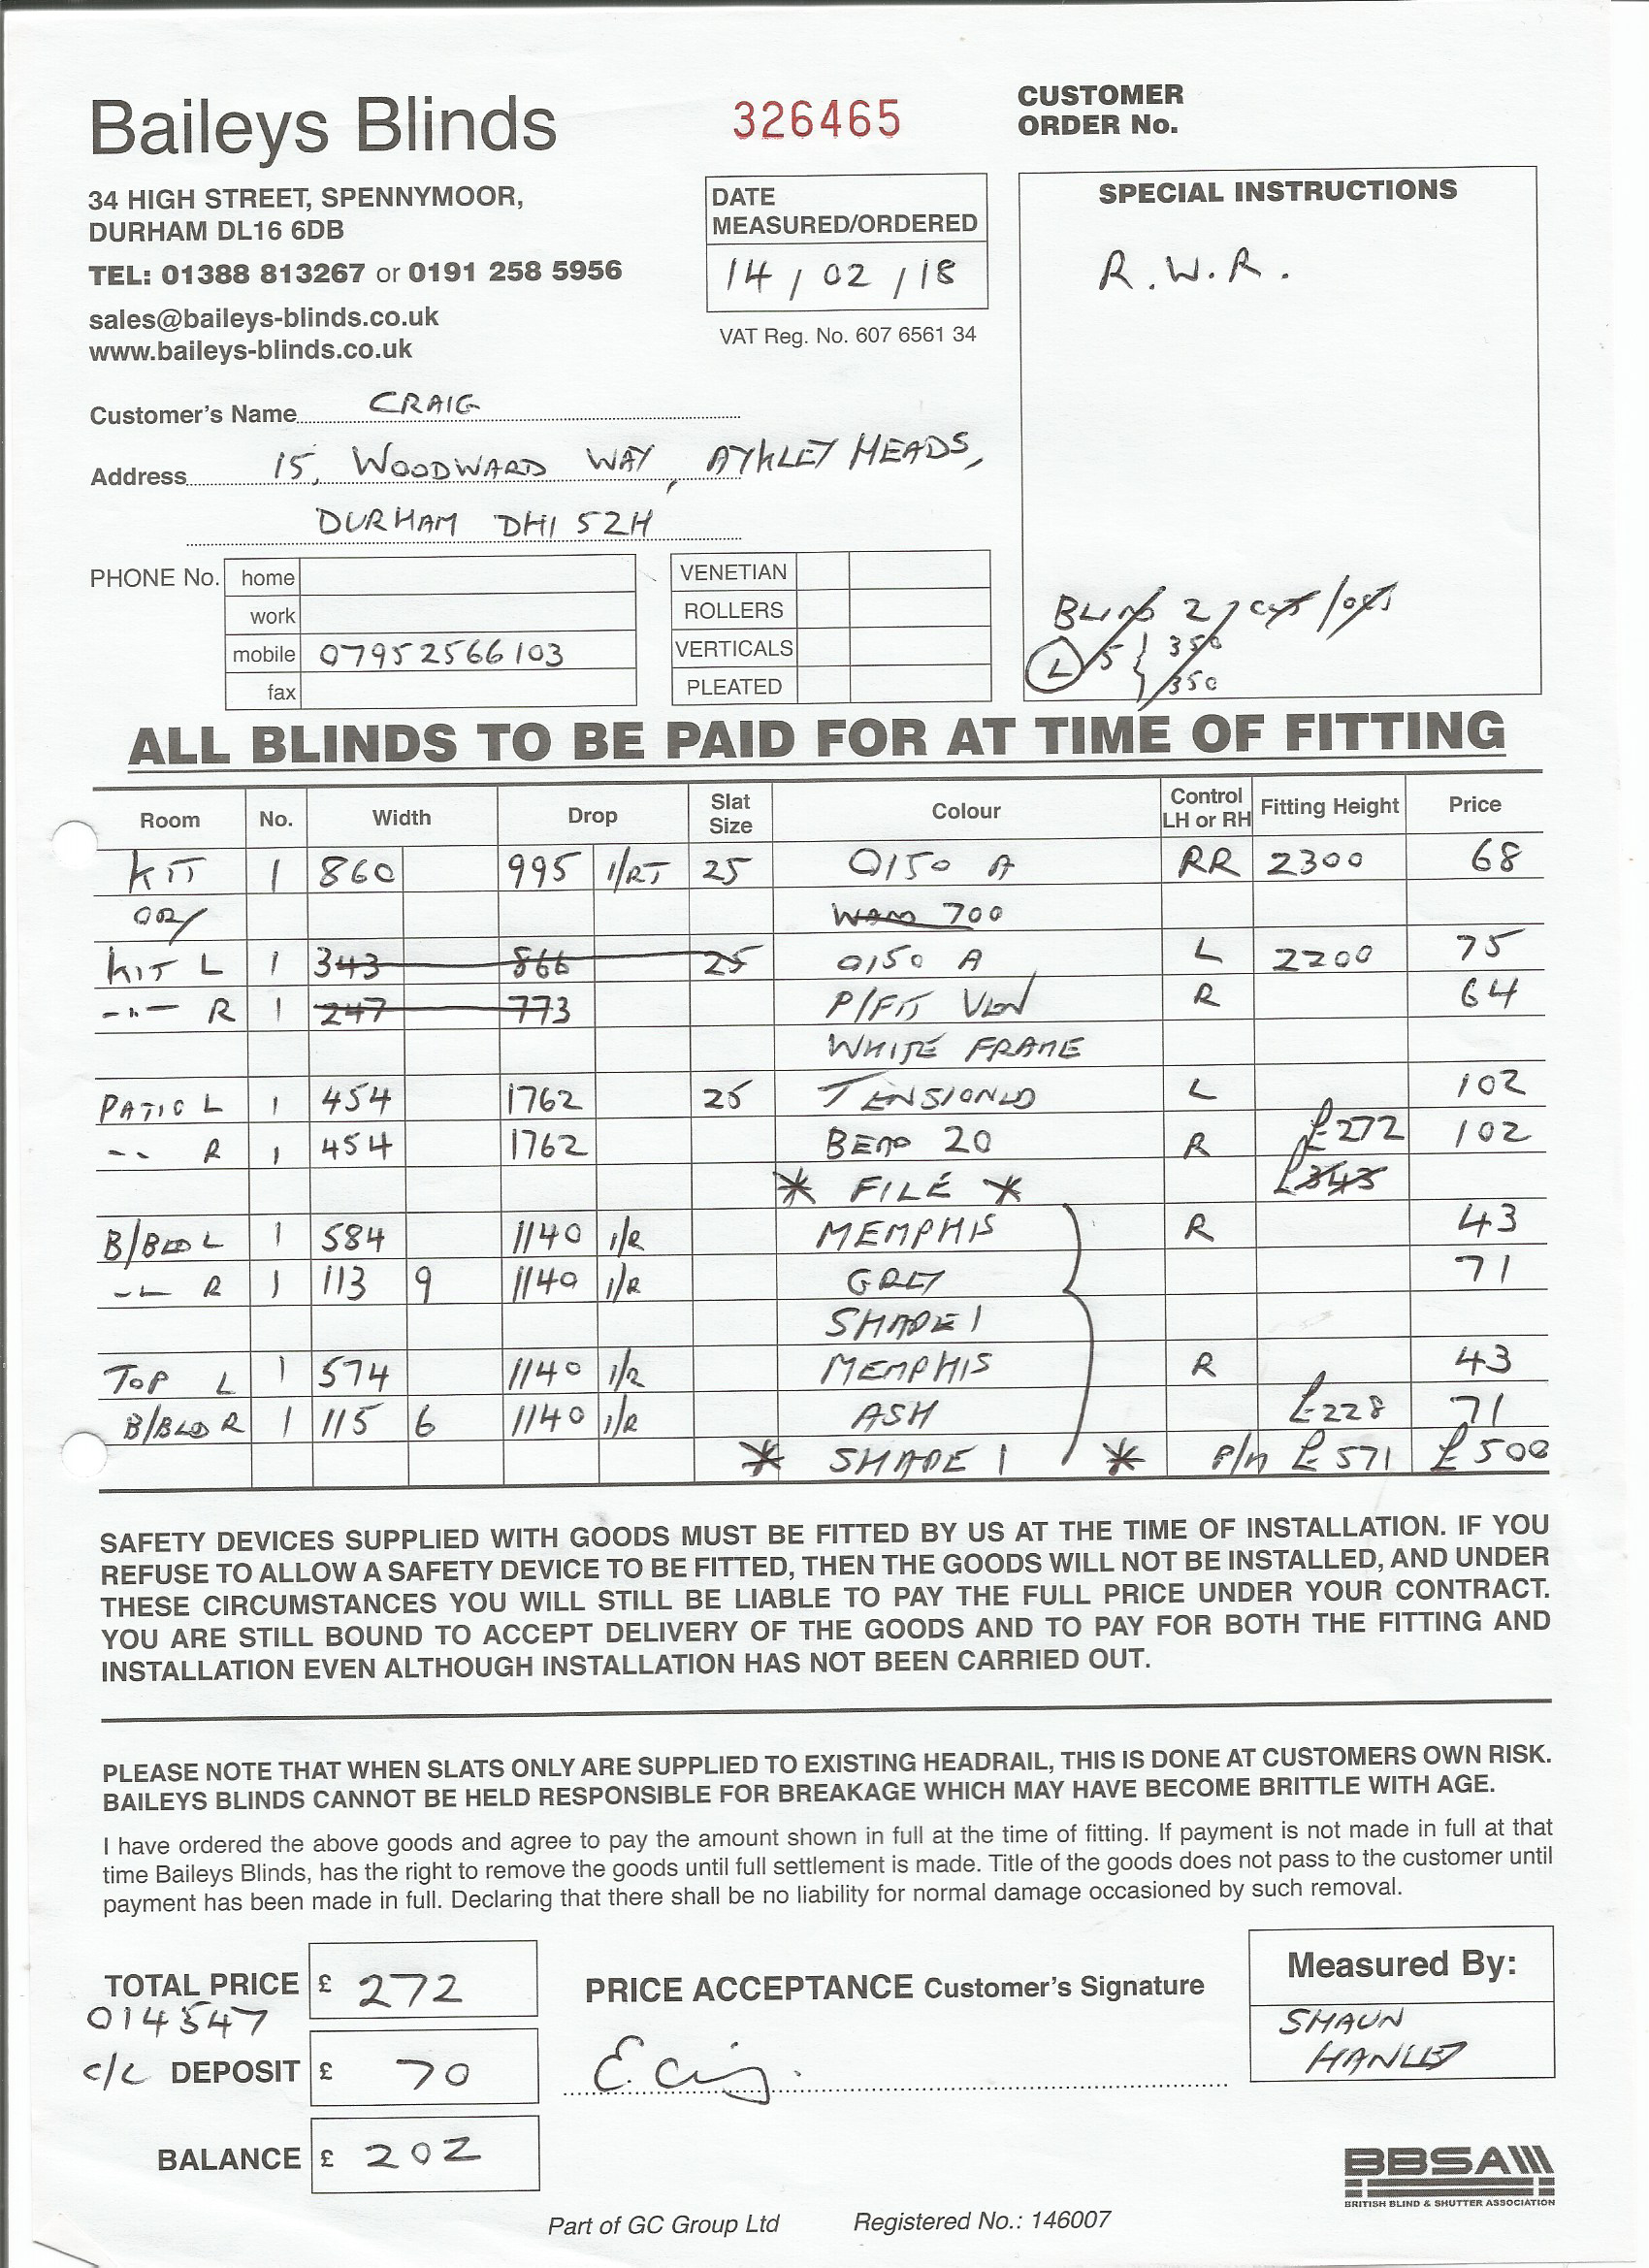 Baileys Blinds
326465
CUSTOMER
ORDER No.
34 HIGH STREET, SPENNYMOOR,
DURHAM DL16 6DB
TEL: 01388 813267 or 0191 258 5956
sales@baileys-blinds.co.uk
www.baileys-blinds.co.uk
DATE
MEASURED/ORDERED
14 / 02 / 18
VAT Reg. No. 607 6561 34
SPECIAL INSTRUCTIONS
R.W.R.
Customer's Name CRAIG
Address 15, WOODWARD WAY, AYKLEY HEADS,
DURHAM DH1 5ZH
PHONE No. home
work
mobile 07952566103
fax
VENETIAN
ROLLERS
VERTICALS
PLEATED
BLIND 2
L 5 { 350
350
ALL BLINDS TO BE PAID FOR AT TIME OF FITTING
Room No. Width Drop Slat Size Colour Control LH or RH Fitting Height Price
KIT 1 860 995 1/RT 25 0150 A RR 2300 68
700
KIT L 1 343 866 25 0150 A L 2200 75
-"- R 1 247 773 P/FIT VEN R 64
WHITE FRAME
PATIO L 1 454 1762 25 TENSIONED L 102
-- R 1 454 1762 BEAD 20 R £272 102
* FILE * £343
B/BED L 1 584 1140 1/R MEMPHIS R 43
-- R 1 113 9 1140 1/R GREY 71
SHADE 1
TOP L 1 574 1140 1/R MEMPHIS R 43
B/BED R 1 115 6 1140 1/R ASH £228 71
* SHADE 1 * P/M £571 £500
SAFETY DEVICES SUPPLIED WITH GOODS MUST BE FITTED BY US AT THE TIME OF INSTALLATION. IF YOU
REFUSE TO ALLOW A SAFETY DEVICE TO BE FITTED, THEN THE GOODS WILL NOT BE INSTALLED, AND UNDER
THESE CIRCUMSTANCES YOU WILL STILL BE LIABLE TO PAY THE FULL PRICE UNDER YOUR CONTRACT.
YOU ARE STILL BOUND TO ACCEPT DELIVERY OF THE GOODS AND TO PAY FOR BOTH THE FITTING AND
INSTALLATION EVEN ALTHOUGH INSTALLATION HAS NOT BEEN CARRIED OUT.
PLEASE NOTE THAT WHEN SLATS ONLY ARE SUPPLIED TO EXISTING HEADRAIL, THIS IS DONE AT CUSTOMERS OWN RISK.
BAILEYS BLINDS CANNOT BE HELD RESPONSIBLE FOR BREAKAGE WHICH MAY HAVE BECOME BRITTLE WITH AGE.
I have ordered the above goods and agree to pay the amount shown in full at the time of fitting. If payment is not made in full at that
time Baileys Blinds, has the right to remove the goods until full settlement is made. Title of the goods does not pass to the customer until
payment has been made in full. Declaring that there shall be no liability for normal damage occasioned by such removal.
TOTAL PRICE £ 272
014547
C/C DEPOSIT £ 70
BALANCE £ 202
PRICE ACCEPTANCE Customer's Signature
E. Craig.
Measured By:
SHAUN
HANLEY
BBSA
BRITISH BLIND & SHUTTER ASSOCIATION
Part of GC Group Ltd Registered No.: 146007